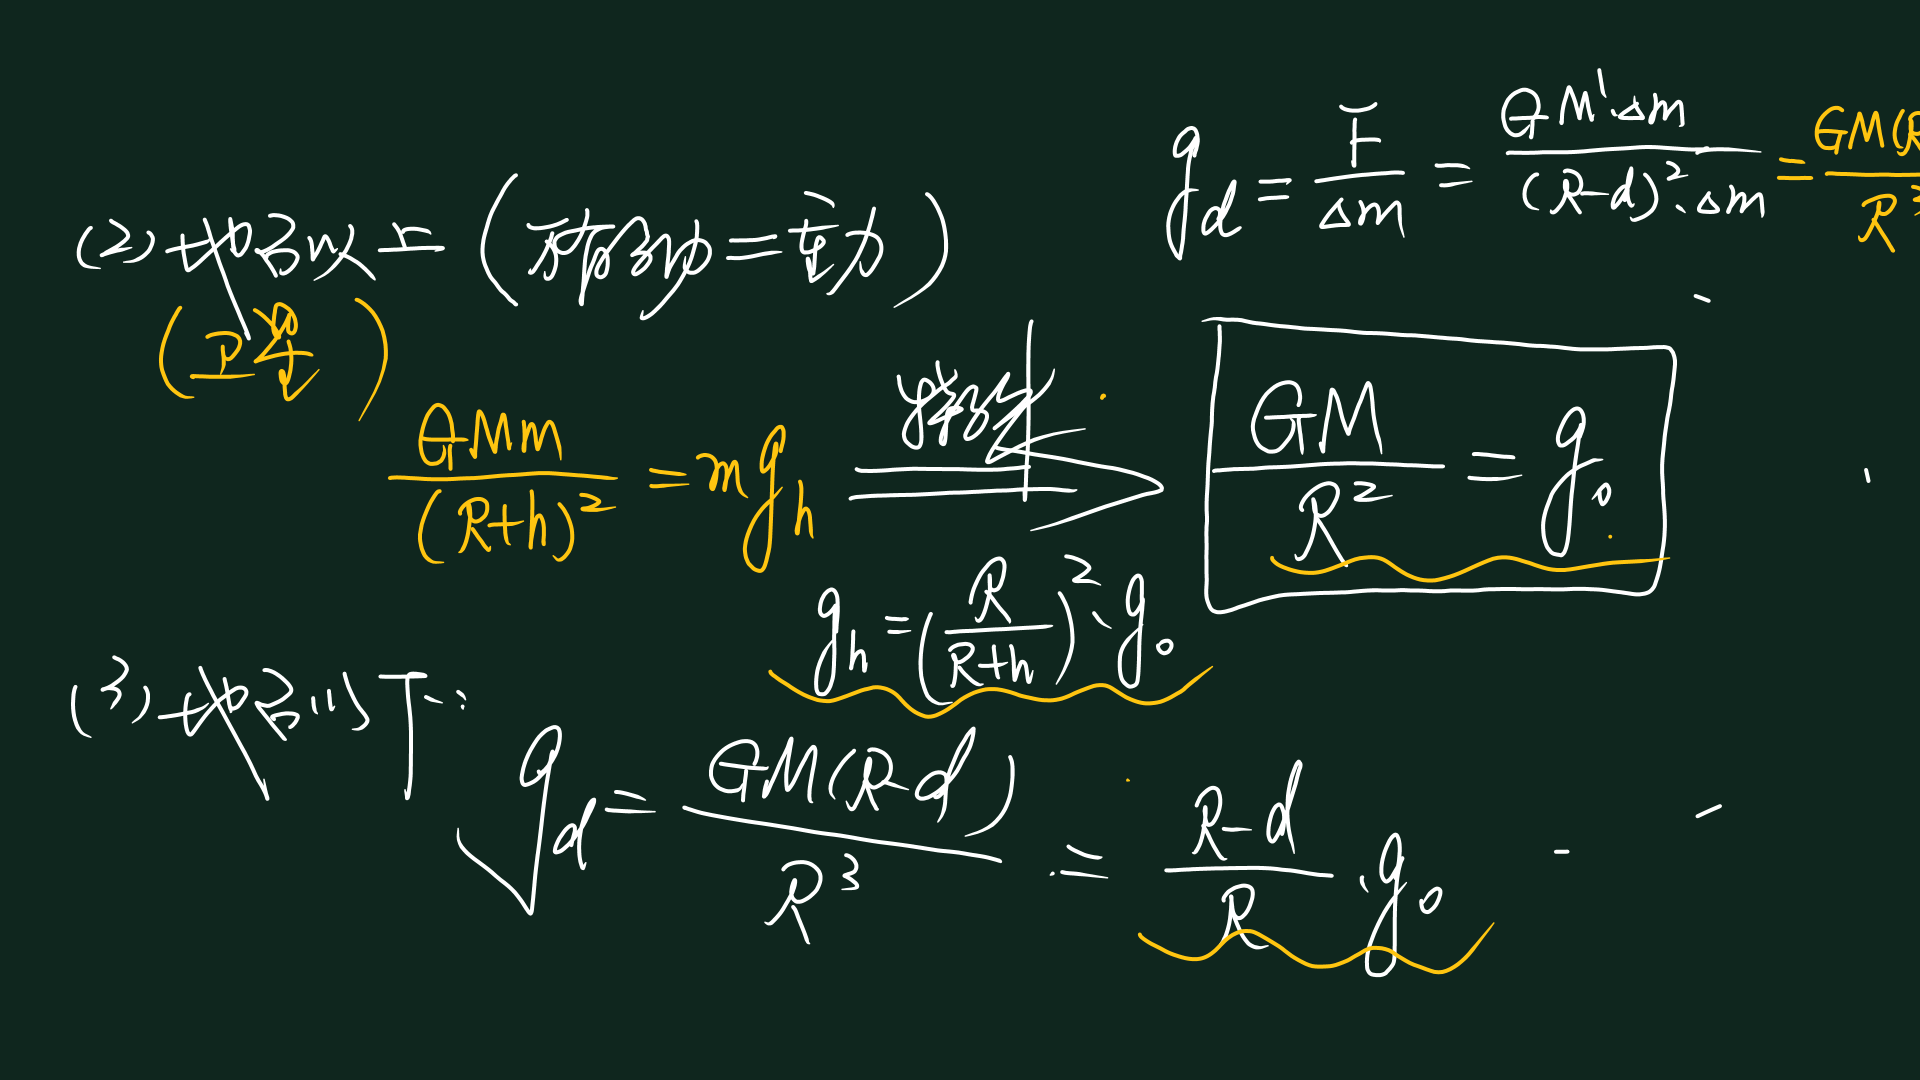 g_d = F/Δm = GM'·Δm/(R-d)²·Δm = GM(R
R³
(2) 地名以上 (万有引力=重力)
(卫星)
GMm/(R+h)² = mg_h ⟹ GM/R² = g₀
g_h = (R/(R+h))²·g₀
(3) 地名以下:
g_d = GM(R-d)/R³ = (R-d)/R·g₀